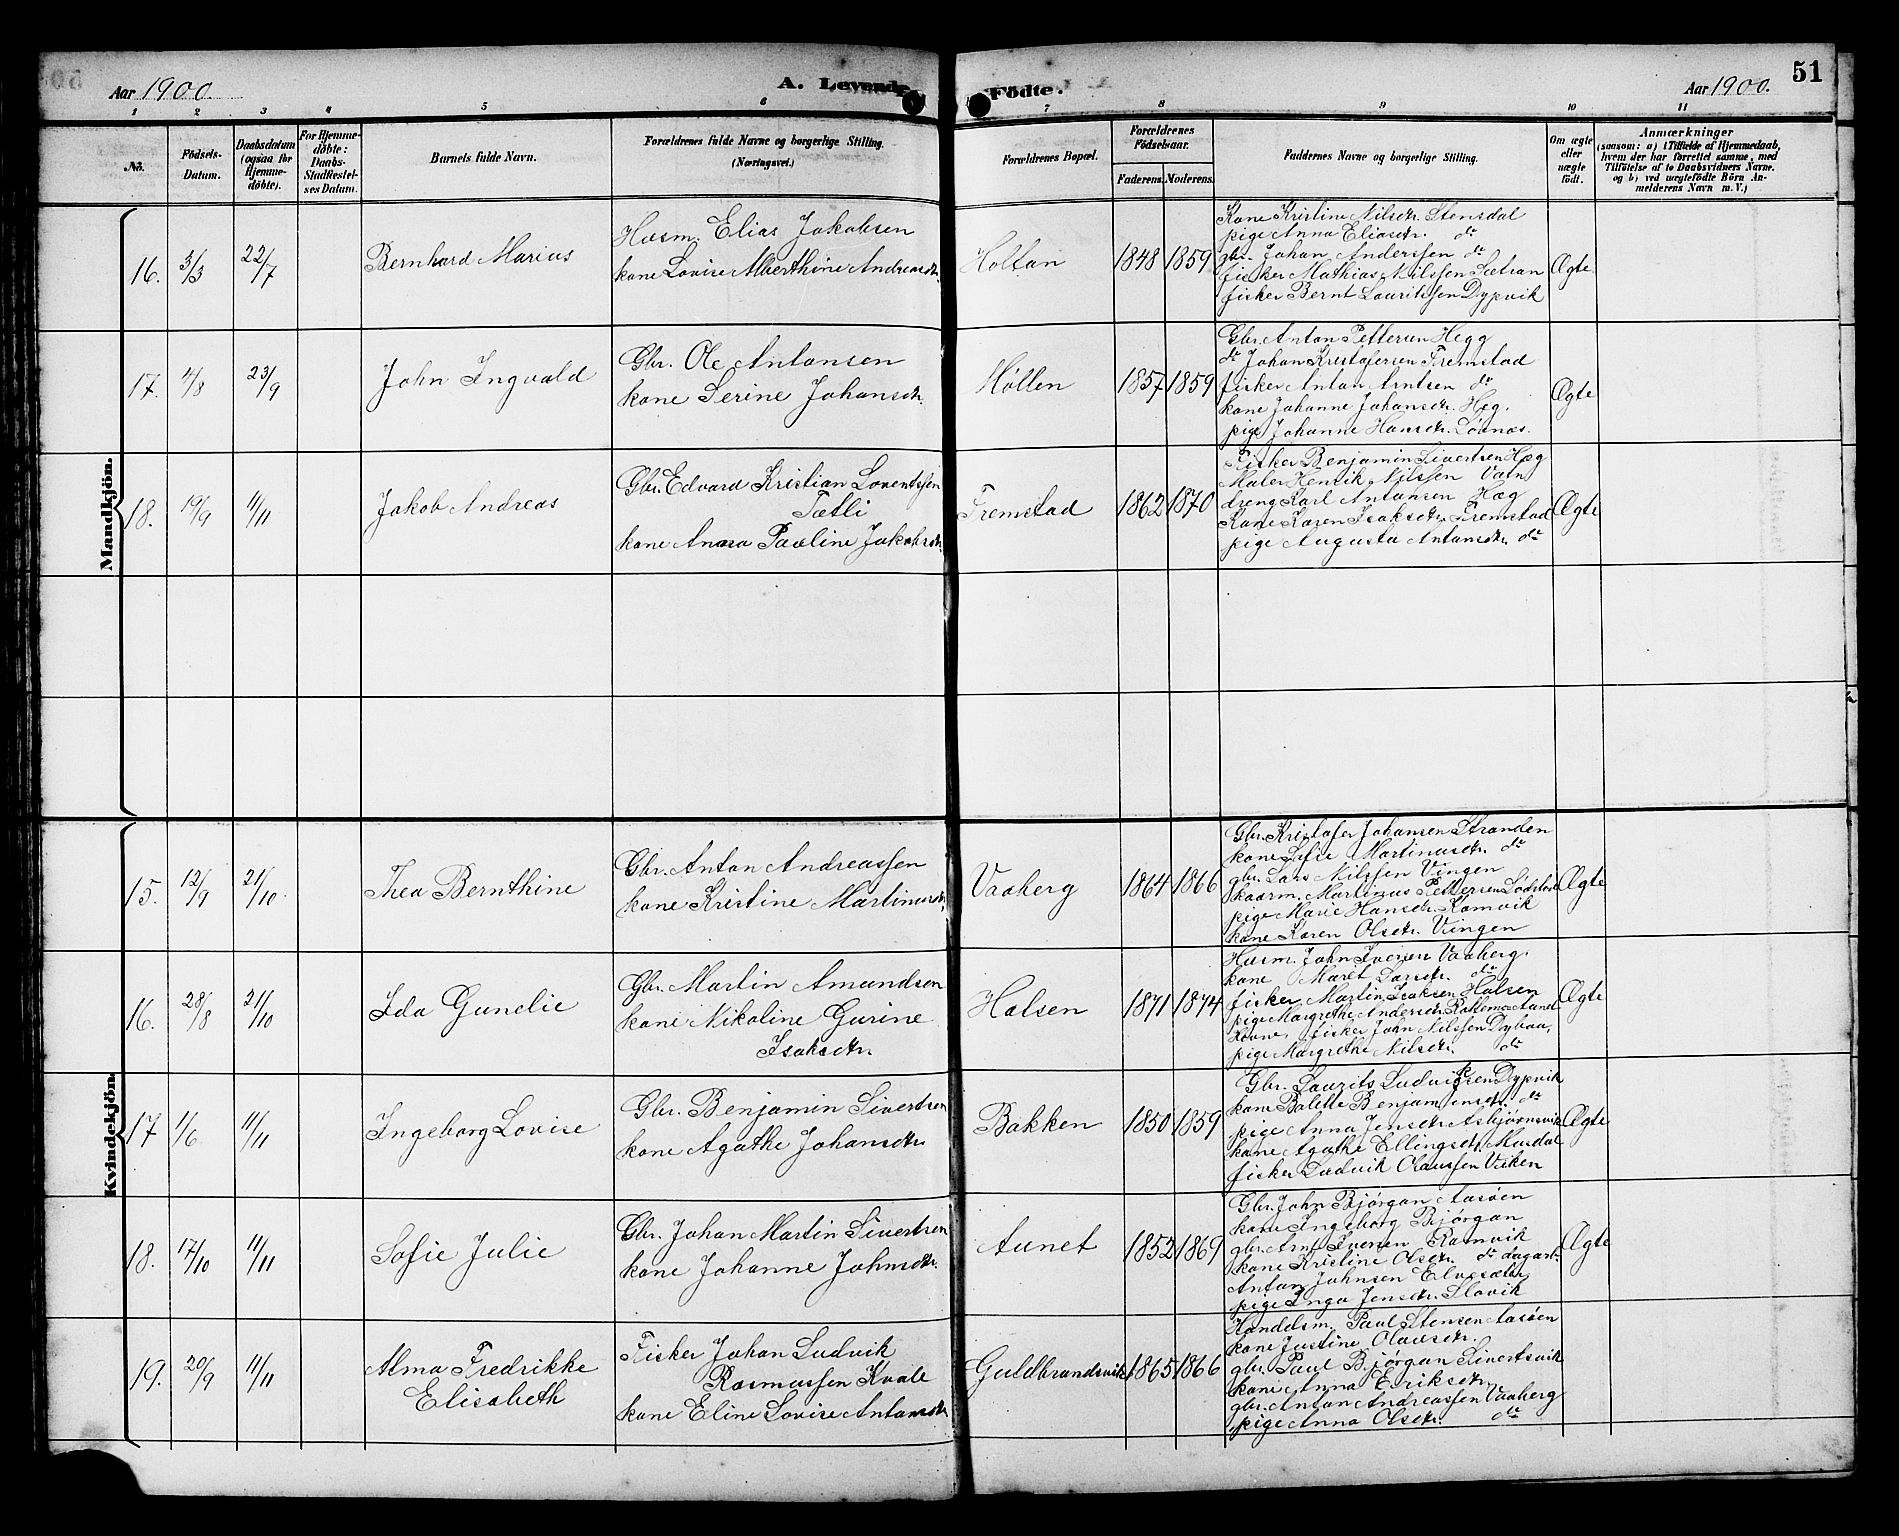 Aar 1900.
A. Levende Fødte.
Aar 1900.
51
1 2 3 4 5 6 7 8 9 10 11
No.
Fødsels-Datum.
Daabsdatum (ogsaa for Hjemmedøbte).
For Hjemmedøbte: Daabs-Stadfæstelses Datum.
Barnets fulde Navn.
Forældrenes fulde Navne og borgerlige Stilling. (Næringsvei.)
Forældrenes Bopæl.
Forældrenes Fødselsaar.
Faderens. Moderens.
Faddernes Navne og borgerlige Stilling.
Om ægte eller uægte født.
Anmærkninger
(saasom: a) i Tilfælde af Hjemmedaab, hvem der har forrettet samme, med Tilføielse af to Daabsvidners Navne. og b) ved uægtefødte Børn Anmelderens Navn m. V.)
Mandkjøn.
16. 3/3 22/7 Bernhard Marius
Husm. Elias Jakobsen
kone Lovise Alberthine Andreasdtr.
Holtan 1848 1859
Kone Kristine Nilsdtr. Stensdal
pige Anna Eliasdtr. do
gbr. Johan Anderssen do
fisker Mathias Nilssen Sætran
fisker Bernt Lauritssen Dypvik
Ægte
17. 4/8 23/9 John Ingvald
Gbr. Ole Antonsen
kone Serine Johansdtr.
Hollen 1857 1859
Gbr. Anton Pettersen Hegg
do Johan Kristofersen Fremstad
fisker Anton Arntsen do
kone Johanne Johansdtr. Heg.
pige Johanne Hansdtr.
Ægte
18. 19/9 11/11 Jakob Andreas
Gbr. Edvard Kristian Lorentssen
Tætli
kone Anna Pauline Jakobsdtr.
Fremstad 1862 1870
Fisker Benjamin Sivertsen Hæg
Maler Henrik Nilssen Vatn
dreng Karl Antonsen Hæg
Kone Karen Isaksdtr. Fremstad
pige Augusta Antonsdtr. do
Ægte
Kvindekjøn.
15. 12/9 21/10 Thea Bernthine
Gbr. Anton Andreassen
kone Kristine Martinusdtr.
Vaaberg 1864 1866
Gbr. Kristofer Johansen Stranden
kone Sofie Martinusdtr. do
gbr. Lars Nilssen Vingen
Martinus Pettersen
pige Marie Hansdtr. Kamvik
kone Karen Olsdtr. Vingen
Ægte
16. 28/8 21/10 Ida Gunelie
Gbr. Martin Amundsen
kone Nikoline Gurine
Isaksdtr.
Halsen 1871 1874
Husm. John Iversen Vaaberg.
kone Maret Larsdtr. do
fisker Martin Isaksen Halsen
pige Margrethe Andersdtr.
fisker John Nilssen
pige Margrethe Nilsdtr. do
Ægte
17 1/6 11/11 Ingeborg Lovise
Gbr. Benjamin Sivertsen
kone Agathe Johansdtr.
Bakken 1850 1859
Gbr. Laurits Ludvigsen Dypvik
kone Balette Benjaminsdtr. do
pige Anna Jensdtr. Asbjørnsvik
kone Agathe Ellingsdtr. Mardal
fisker Ludvik Olaussen Viken
Ægte
18. 17/10 11/11 Sofie Julie
Gbr. Johan Martin Sivertsen
kone Johanne Johnsdtr.
Aunet 1852 1869
Gbr. John Bjørgan Aasøen
kone Ingeborg Bjørgan
gbr. Arnt Iversen Ramvik
kone Kristine Olsdtr. do dagarb.
Anton Johnsen Elvesæter
pige Inga Jensdtr. Slavik
Ægte
19. 20/9 11/11 Alma Fredrikke
Elisabeth
Fisker Johan Ludvik
Rasmussen Kvale
kone Eline Lovise Antonsdtr.
Guldbrandsvik 1865 1866
Handelsm. Paul Stensen Aasøen
kone Justine Olausdtr.
gbr. Paul Bjørgan Sivertsvik
kone Anna Eriksdtr.
gbr. Anton Andreassen Vaaberg
pige Anna Olsdtr. do